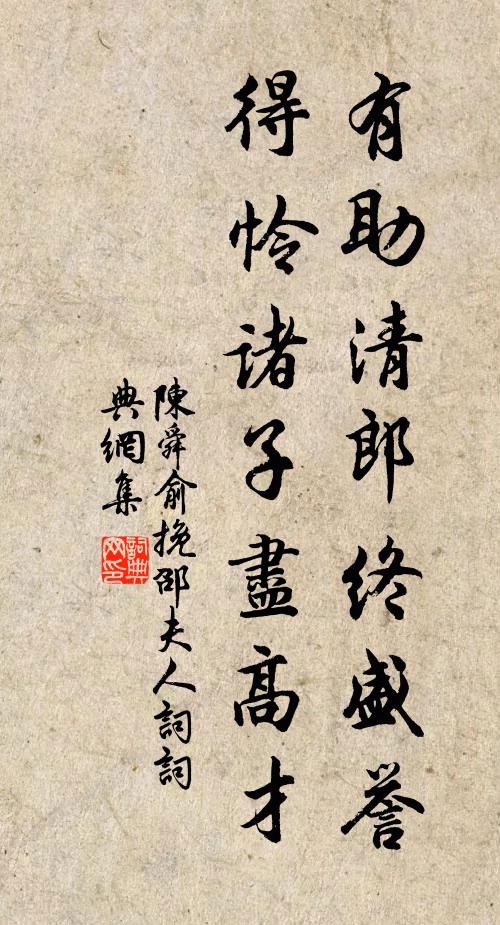 有助清郎终盛誉
得怜诸子盡高才
陳舜俞挽邵夫人詞詞
典網集
詞典
网印